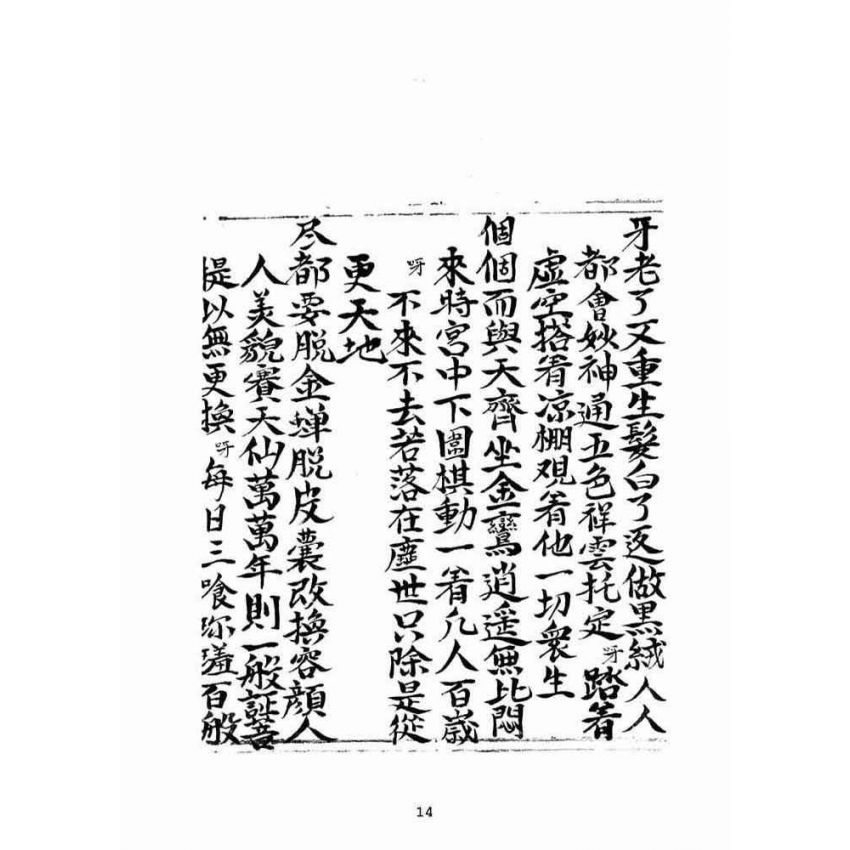 牙老了又重生髮白了返做黑絨人人
都會妙神通五色祥雲托定呀踏着
虛空搭着凉棚观着他一切衆生
個個而與天齊坐金鸞逍遥無比悶
來時宮中下圍棋動一着凢人百歲
呀不來不去若落在塵世只除是從
更天地
尽都要脱金蟬脱皮囊改換容顔人
人美貌賽天仙萬萬年則一般證菩
提以無更換呀每日三喰珎羞百般
14